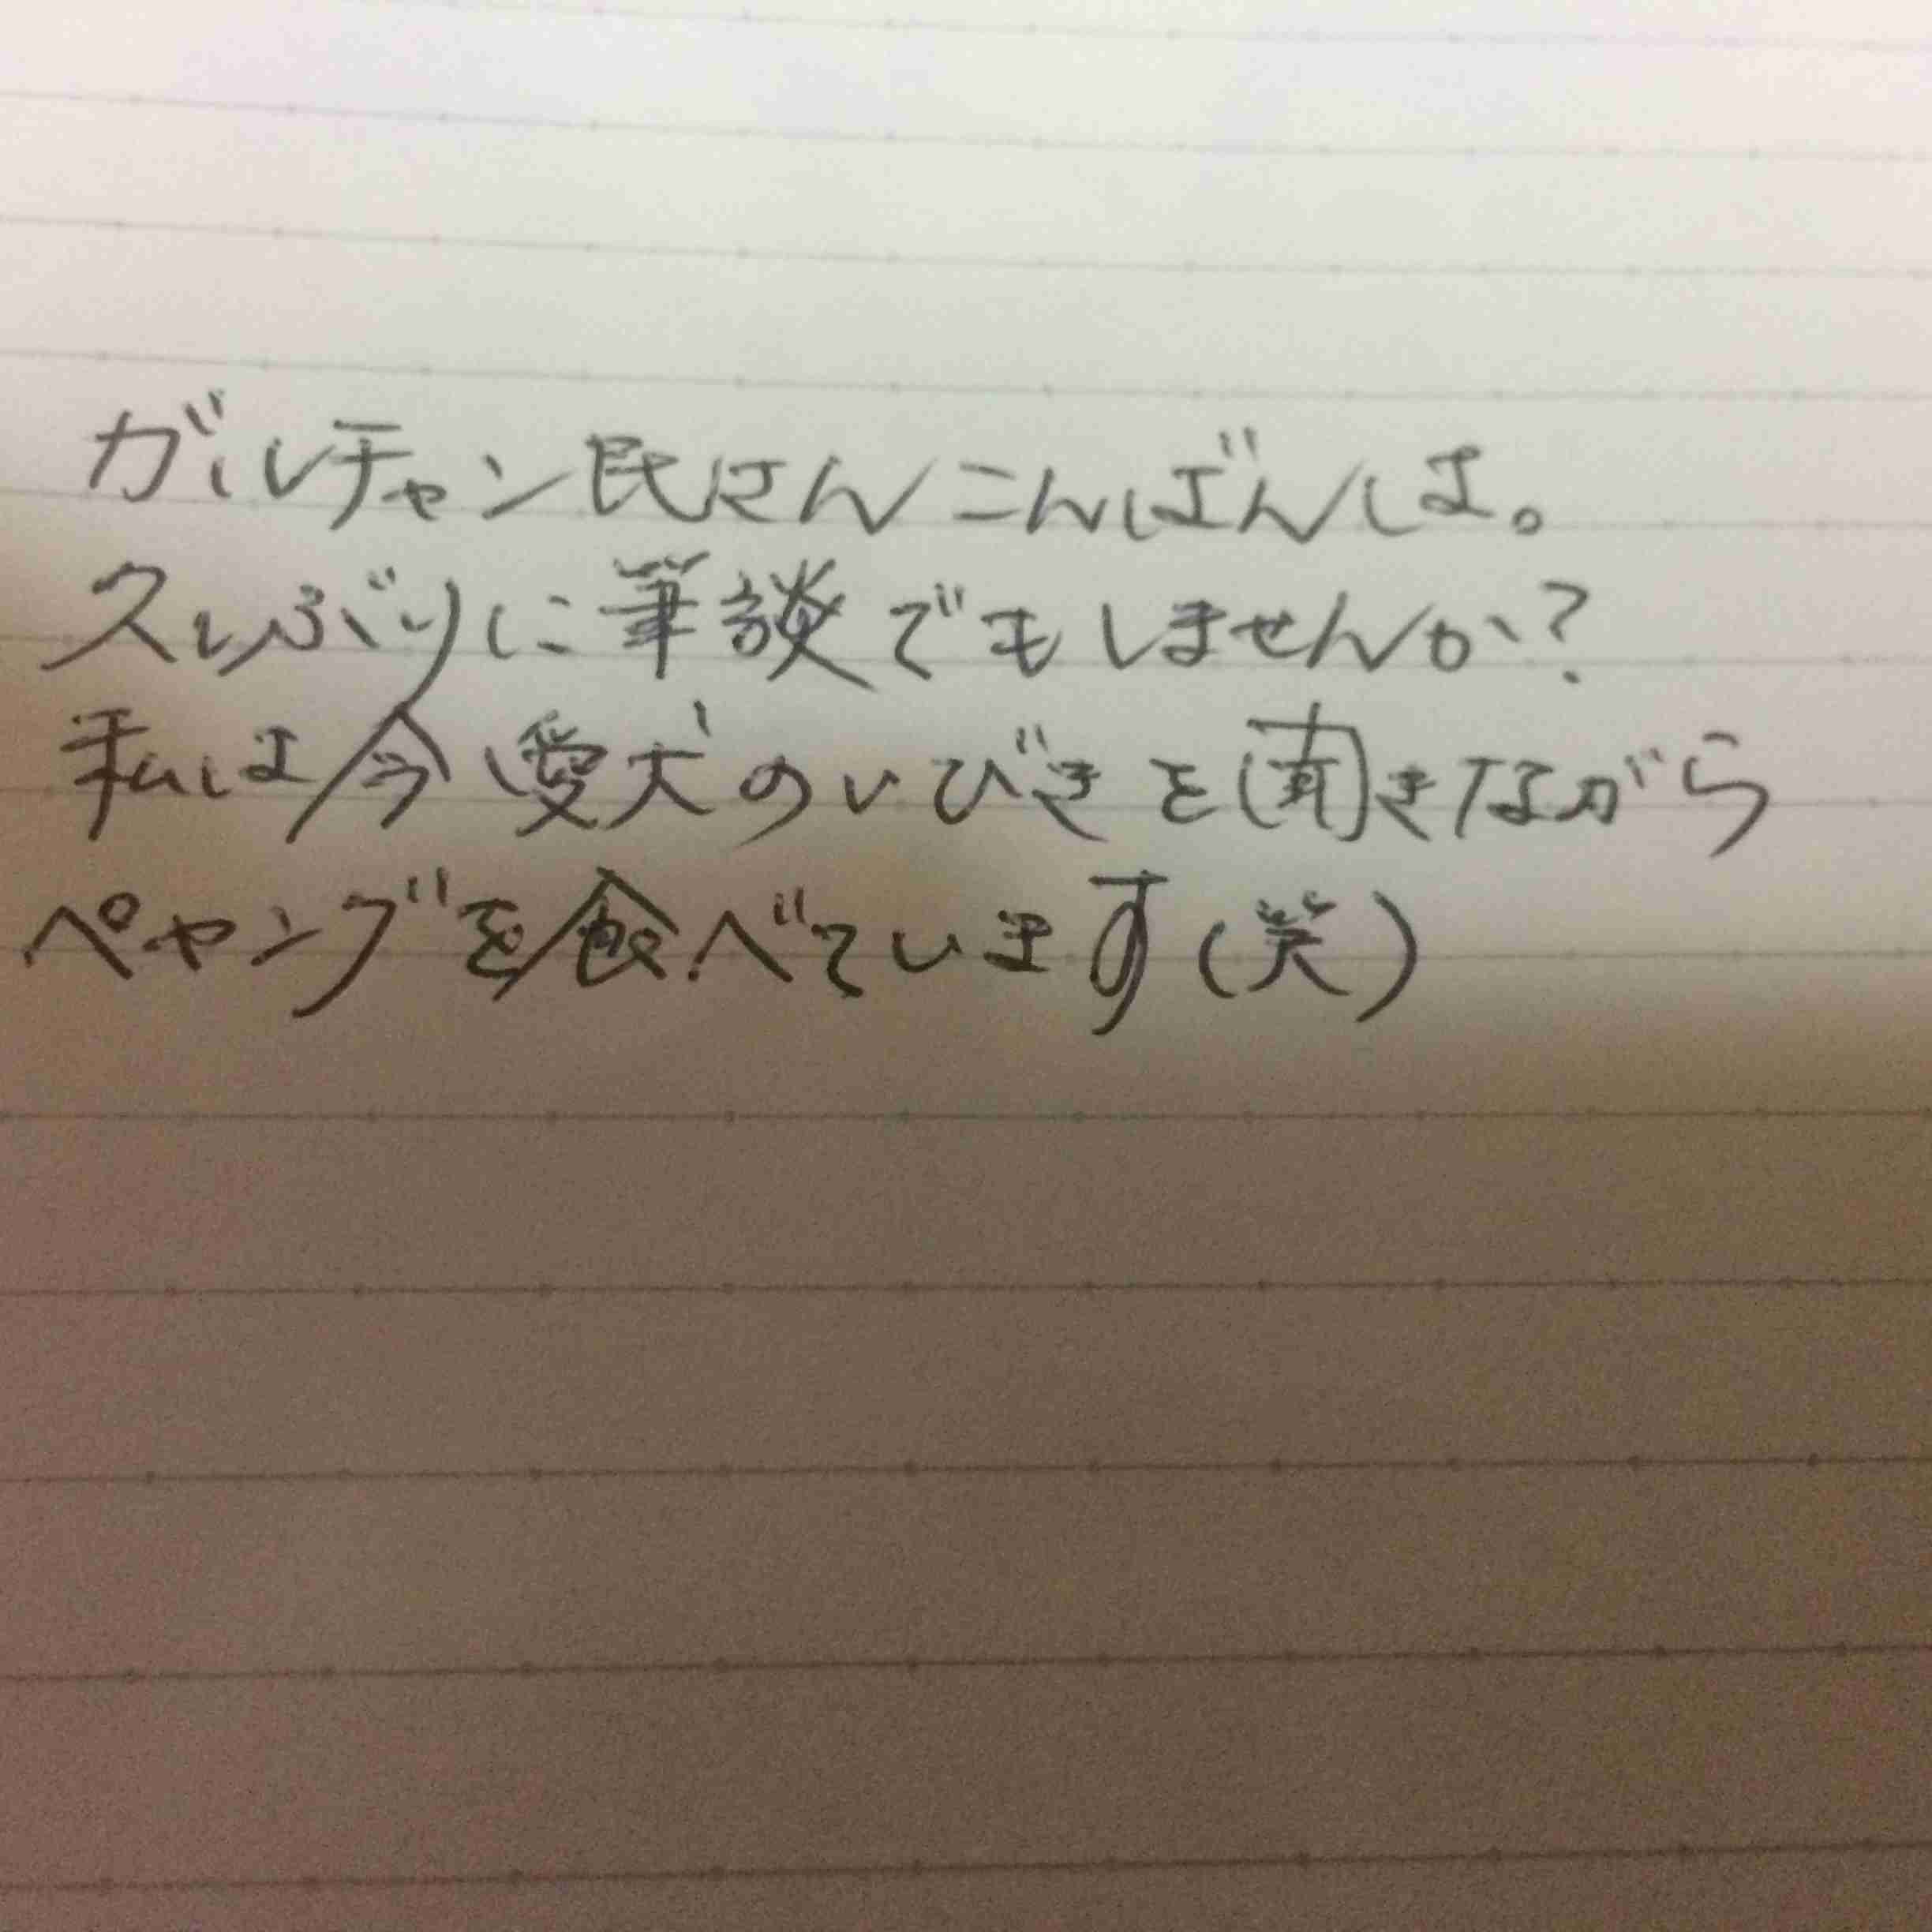 ガルチャン民さんこんばんは。
久しぶりに筆談でもしませんか?
私は今愛犬のいびきを聞きながら
ペヤングを食べています(笑)